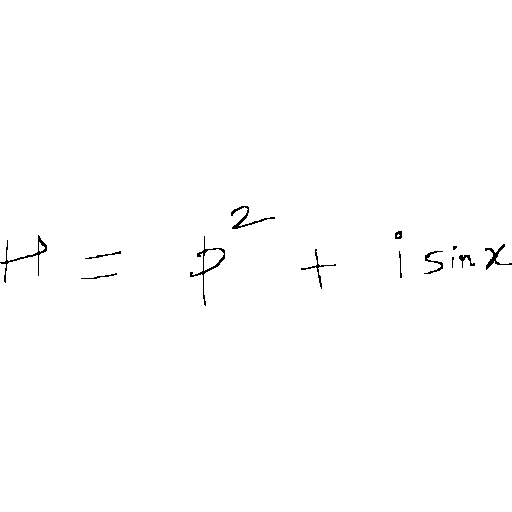 H = p² + i sin x